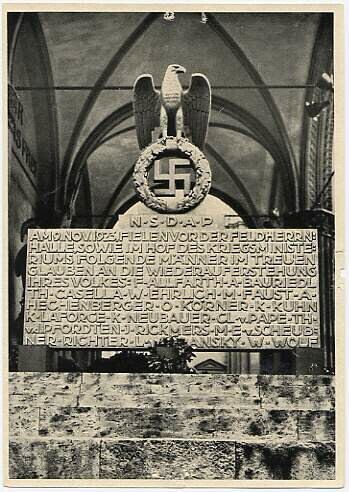 N·S·D·A·P
AM 9. NOV. 1923 FIELEN VOR DER FELDHERRN
HALLE SOWIE IM HOF DES KRIEGSMINISTE
RIUMS FOLGENDE MÄNNER IM TREUEN
GLAUBEN AN DIE WIEDERAUFERSTEHUNG
IHRES VOLKES · F · ALLFARTH · A · BAURIEDL
TH · CASELLA · W · EHRLICH · M · FAUST · A ·
HECHENBERGER · O · KÖRNER · K · KUHN
K · LAFORCE · K · NEUBAUER · CL · v. PAPE · TH ·
v.d. PFORDTEN · J · RICKMERS · M · E · v. SCHEUB
NER · RICHTER · W · WOLF